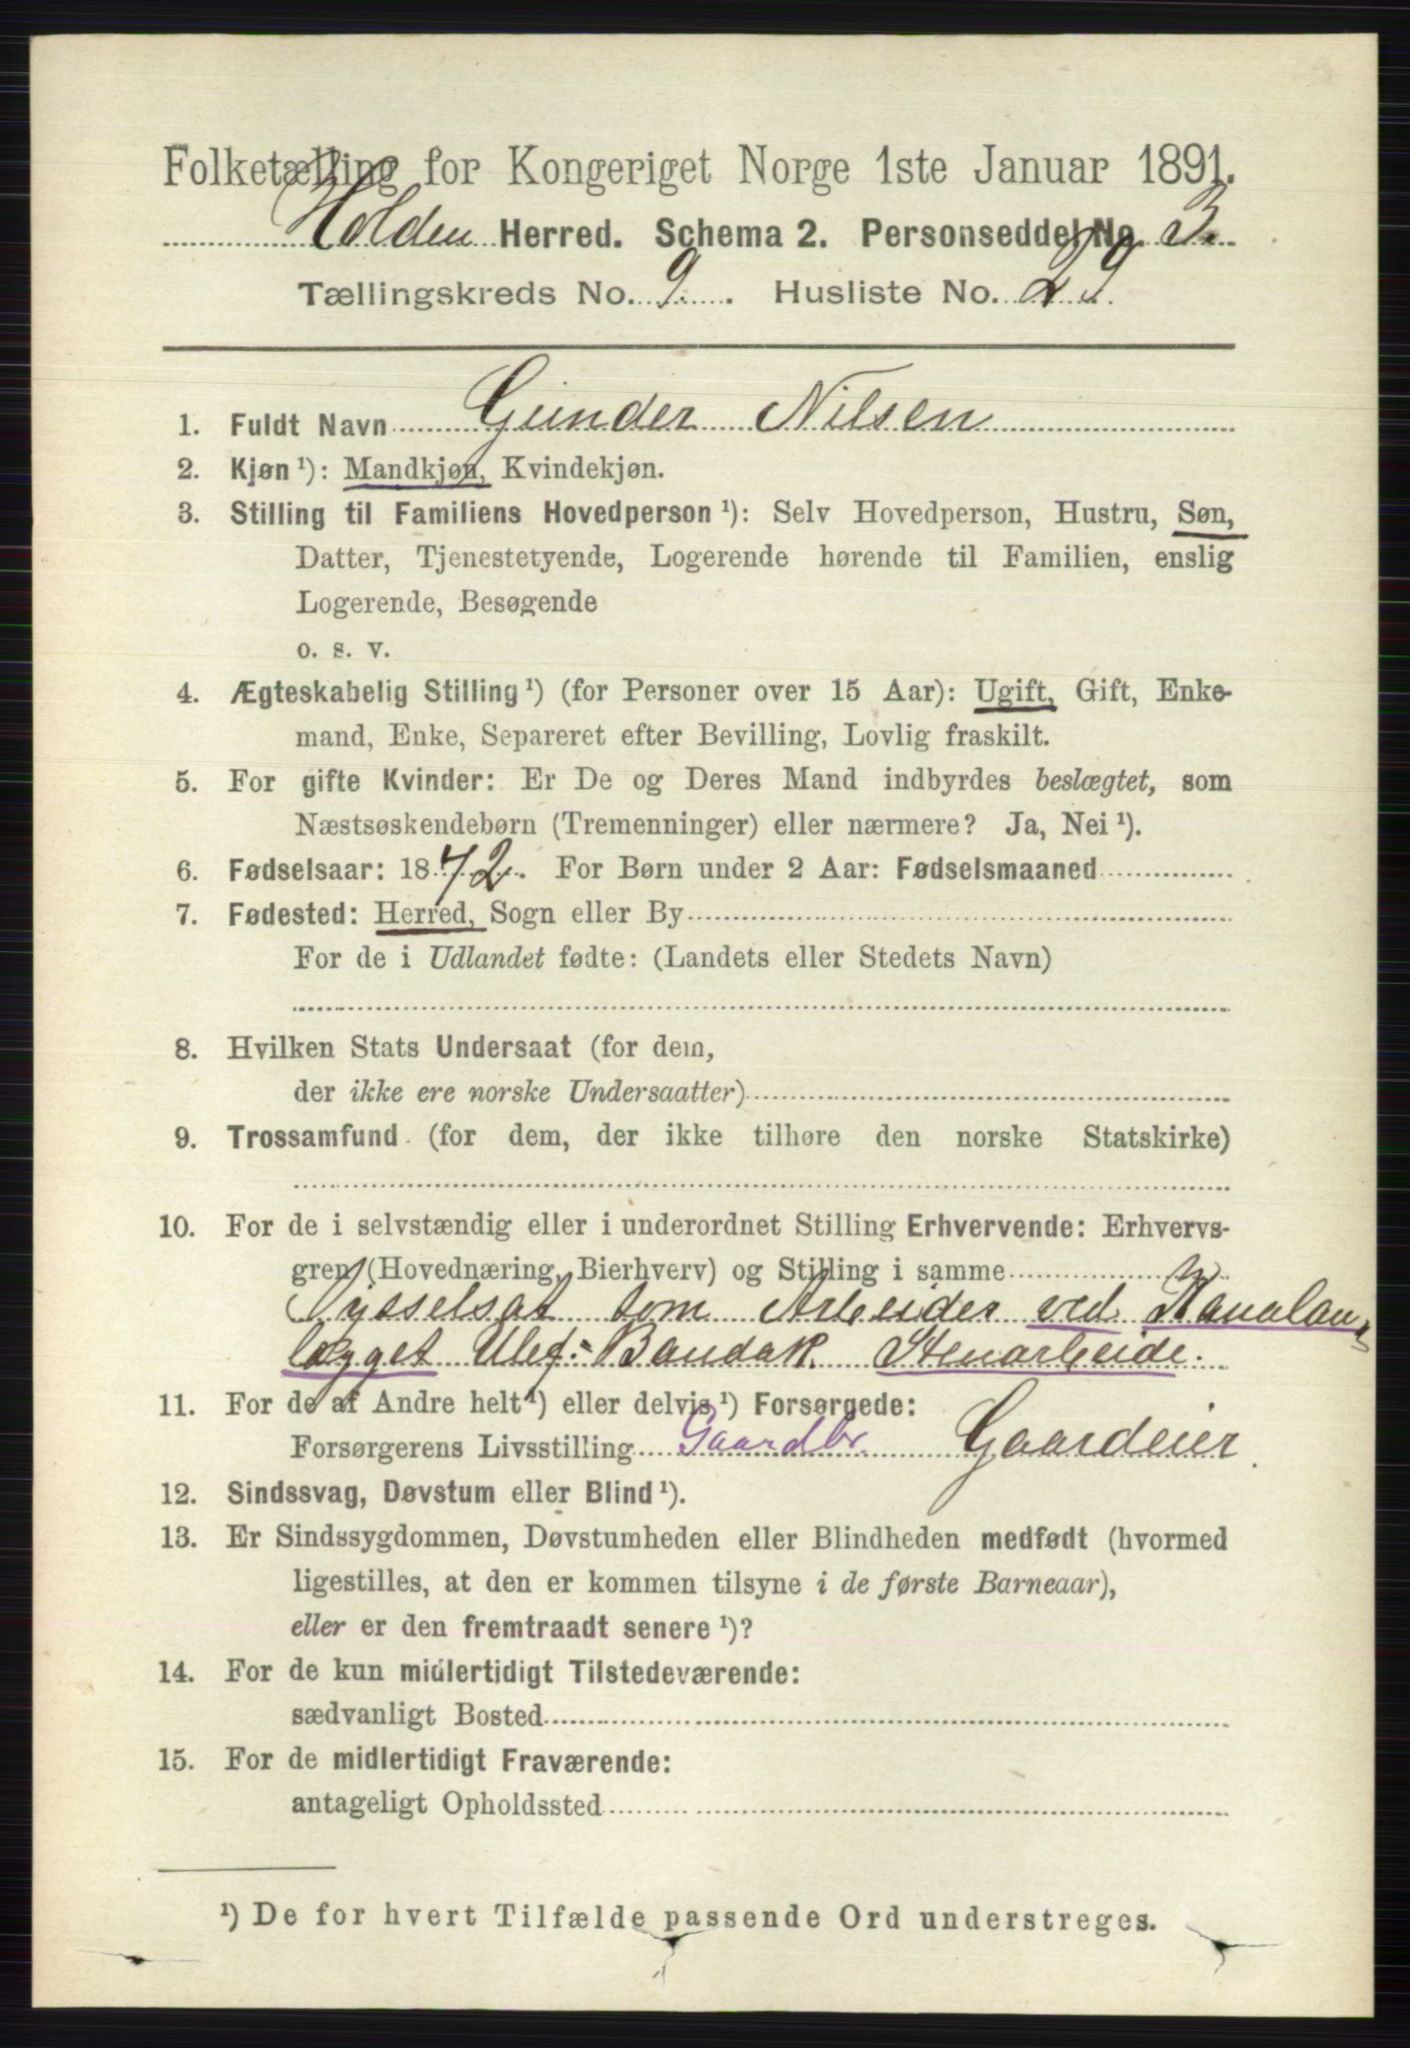 Folketælling for Kongeriget Norge 1ste Januar 1891.
Holden Herred. Schema 2. Personseddel No. 3.
Tællingskreds No. 9. Husliste No. 29
1. Fuldt Navn Gunder Nilsen
2. Kjøn ¹): Mandkjøn, Kvindekjøn.
3. Stilling til Familiens Hovedperson ¹): Selv Hovedperson, Hustru, Søn,
Datter, Tjenestetyende, Logerende hørende til Familien, enslig
Logerende, Besøgende
o. s. v.
4. Ægteskabelig Stilling ¹) (for Personer over 15 Aar): Ugift, Gift, Enke-
mand, Enke, Separeret efter Bevilling, Lovlig fraskilt.
5. For gifte Kvinder: Er De og Deres Mand indbyrdes beslægtet, som
Næstsøskendebørn (Tremenninger) eller nærmere? Ja, Nei ¹).
6. Fødselsaar: 1872. For Børn under 2 Aar: Fødselsmaaned
7. Fødested: Herred, Sogn eller By
For de i Udlandet fødte: (Landets eller Stedets Navn)
8. Hvilken Stats Undersaat (for dem,
der ikke ere norske Undersaatter)
9. Trossamfund (for dem, der ikke tilhøre den norske Statskirke)
10. For de i selvstændig eller i underordnet Stilling Erhvervende: Erhvervs-
gren (Hovednæring, Bierhverv) og Stilling i samme
Sysselsat som Arbeider ved Kanalan-
lægget Ulef-Bandak Stenarbeide.
11. For de af Andre helt ¹) eller delvis ¹) Forsørgede:
Forsørgerens Livsstilling Gaardbr. Gaardeier.
12. Sindssvag, Døvstum eller Blind ¹).
13. Er Sindssygdommen, Døvstumheden eller Blindheden medfødt (hvormed
ligestilles, at den er kommen tilsyne i de første Barneaar),
eller er den fremtraadt senere ¹)?
14. For de kun midlertidigt Tilstedeværende:
sædvanligt Bosted
15. For de midlertidigt Fraværende:
antageligt Opholdssted
¹) De for hvert Tilfælde passende Ord understreges.